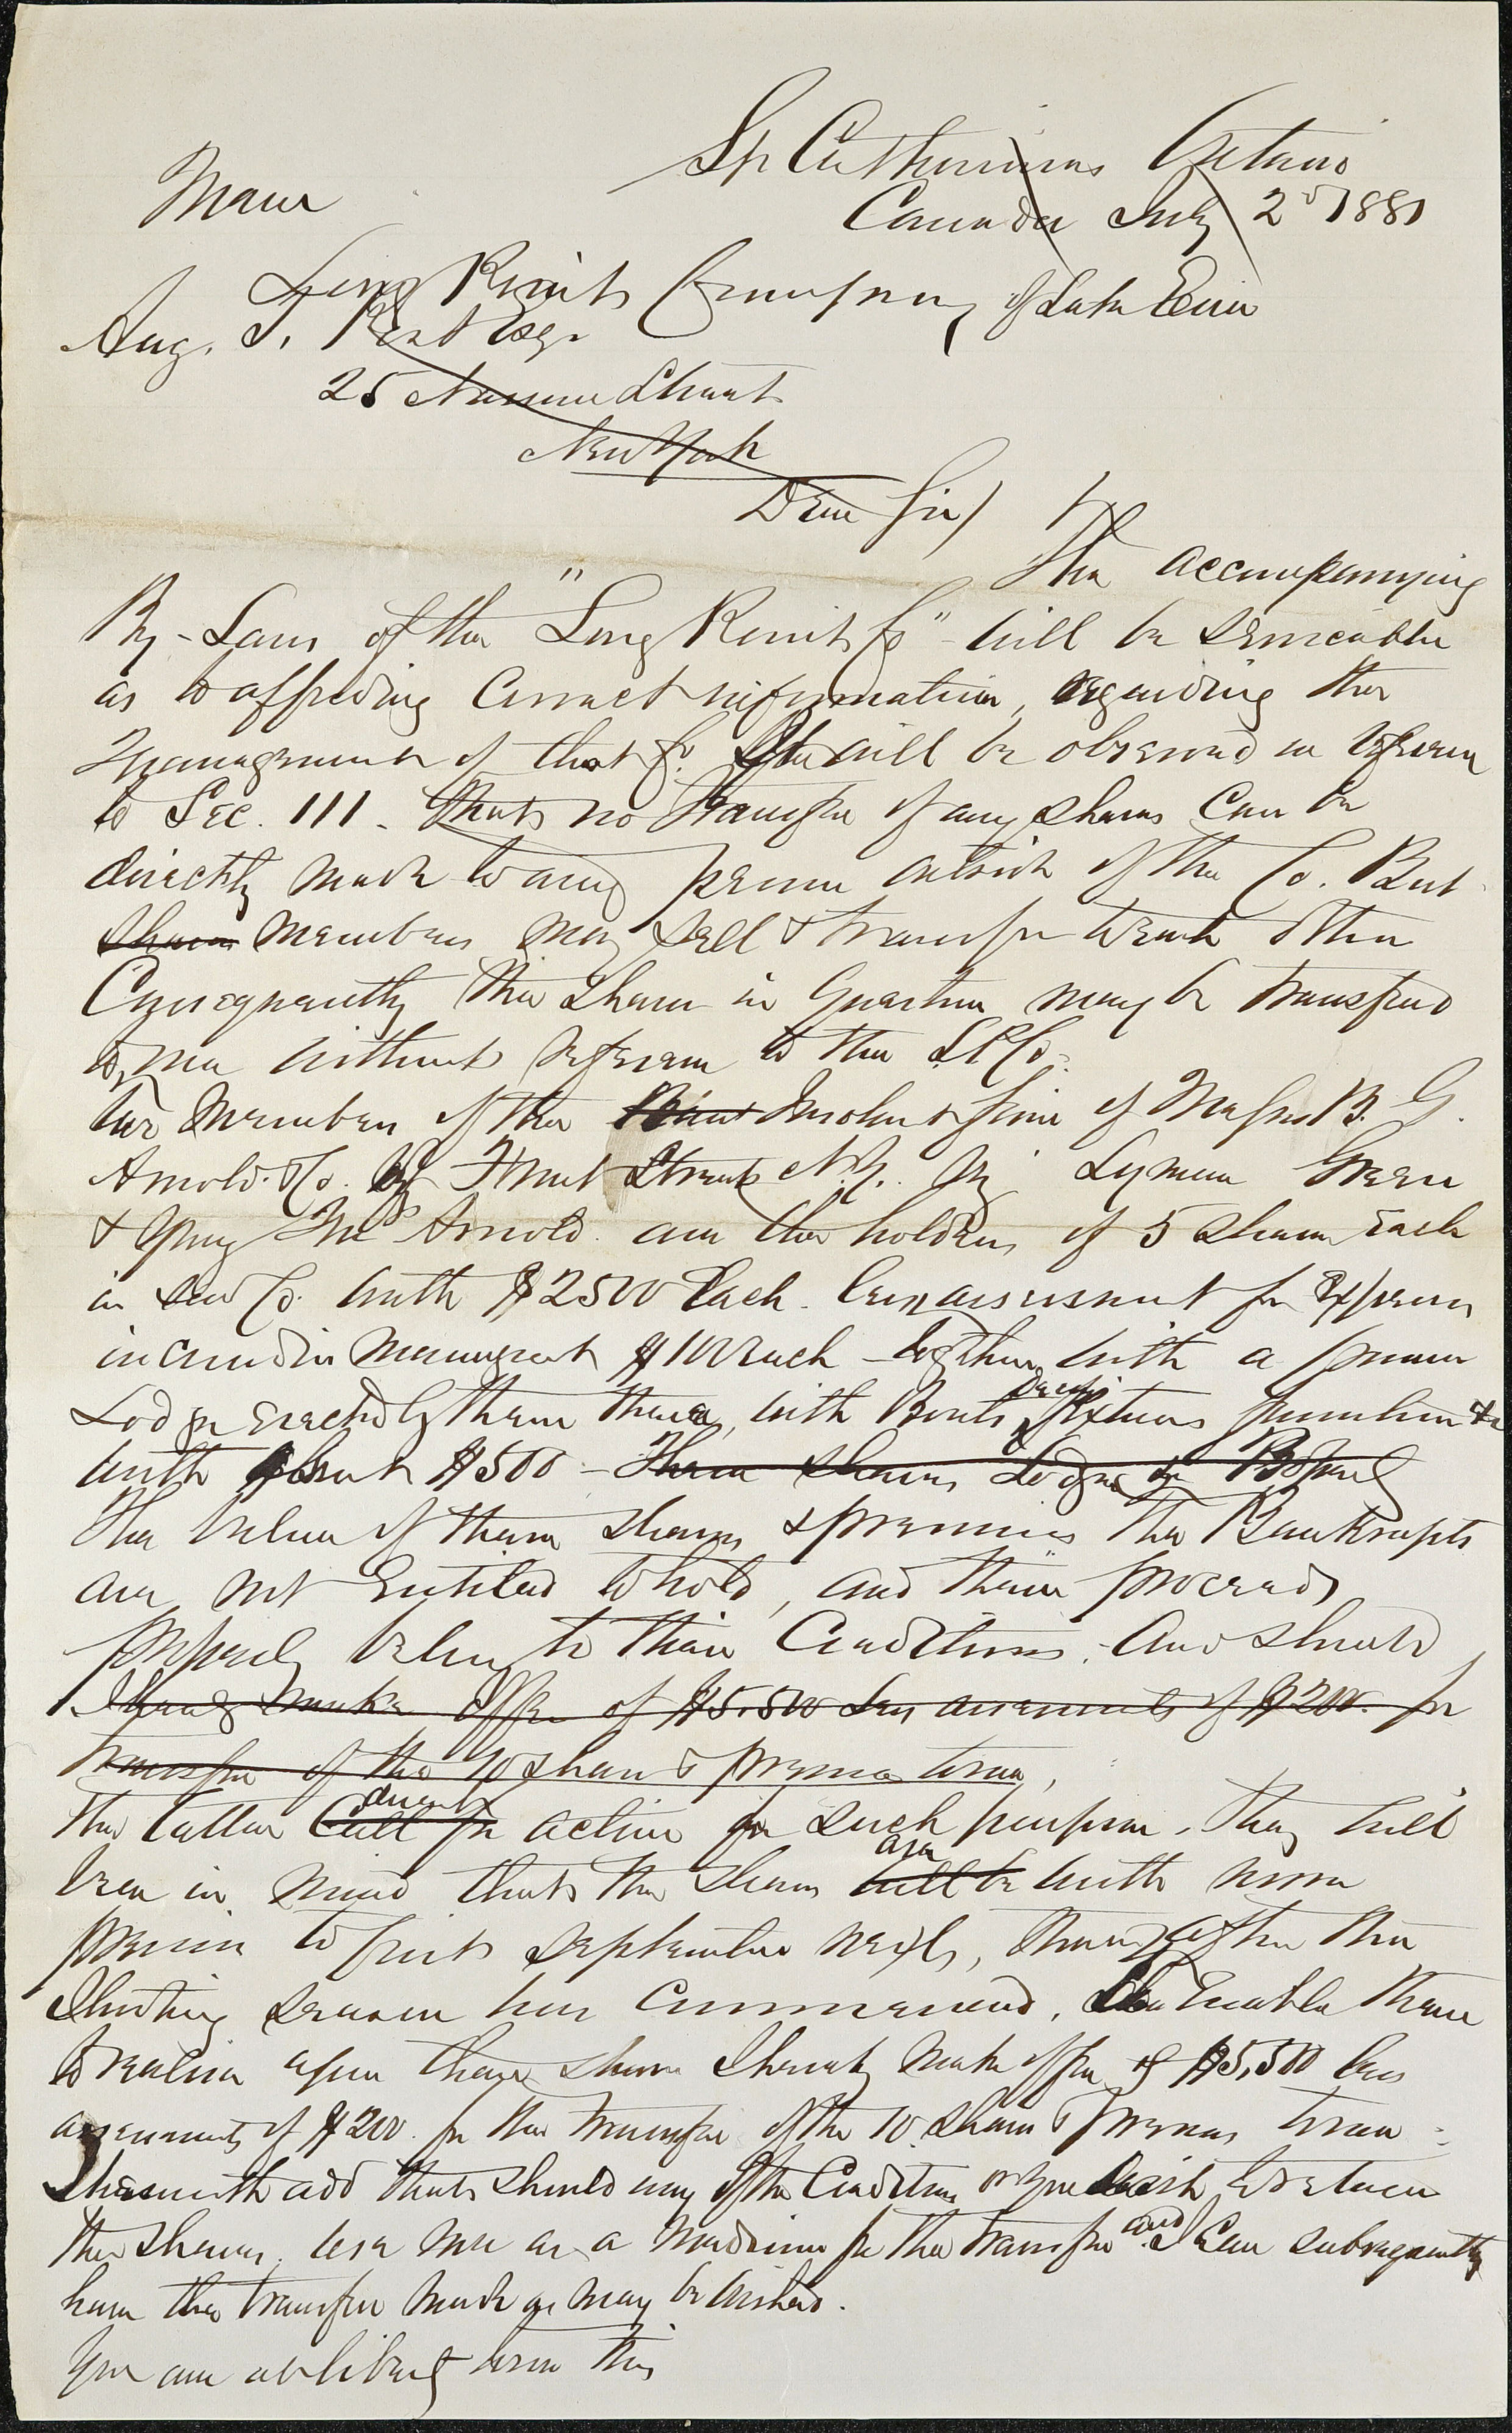 St Catharines Ontario
Memo
Canada July 2d 1881
Long Point Company of Lake Erie
Aug. T. Post Esqr
25 Nassau Street
New York
Dear Sir/
The accompanying
By-Laws of the "Long Point Co" will be serviceable
as to affording correct information, regarding the
management of that Co. It will be observed in reference
to Sec. 111. that no transfer of any shares can be
directly made to any person outside of the Co. But
Shares members may sell & transfer to each other
Consequently the shares in question may be transferred
to me without reference to the L.P.Co.
two members of the Insolvent firm of Messrs B. G.
Arnold & Co. of Front Street N.Y. viz Lyman Greene
& Arnold are the holders of 5 shares each
in said Co. worth $2500 each. less assessment for expenses
incurred in management $100 each - together with a
Lodge erected by them there, with Boats, decoys fixtures furniture &c
worth about $500 - These shares Lodge &
The value of these shares & premises the Bankrupts
are not entitled to hold, and their proceeds
properly belong to their Creditors. And should
I hereby make offer of $5.500 less assessments of $200. for
transfer of the 10 shares & premises
the latter call for action for such purpose, they will
bear in mind that the shares will be are worth more
previous to first September next, than after the
Shooting season has commenced. To enable them
to realize upon these shares I hereby make offer of $5,500 less
assessments of $200. for the transfer of the 10 shares & premises
I herewith add that should any of the Creditors or you desire to retain
the shares, use me as a medium for the transfer and I can subsequently
have the transfer made as may be wished.
You are at liberty to use this